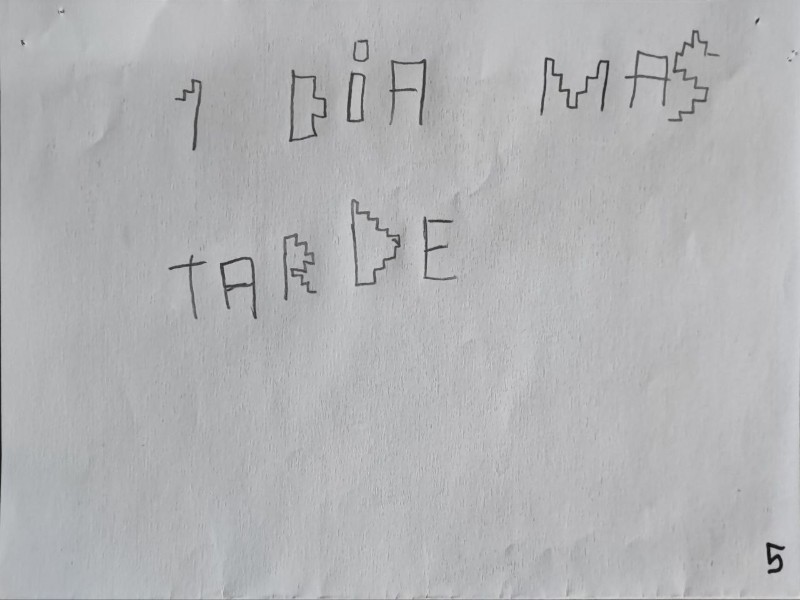 1 DiA MAS
TARDE
5